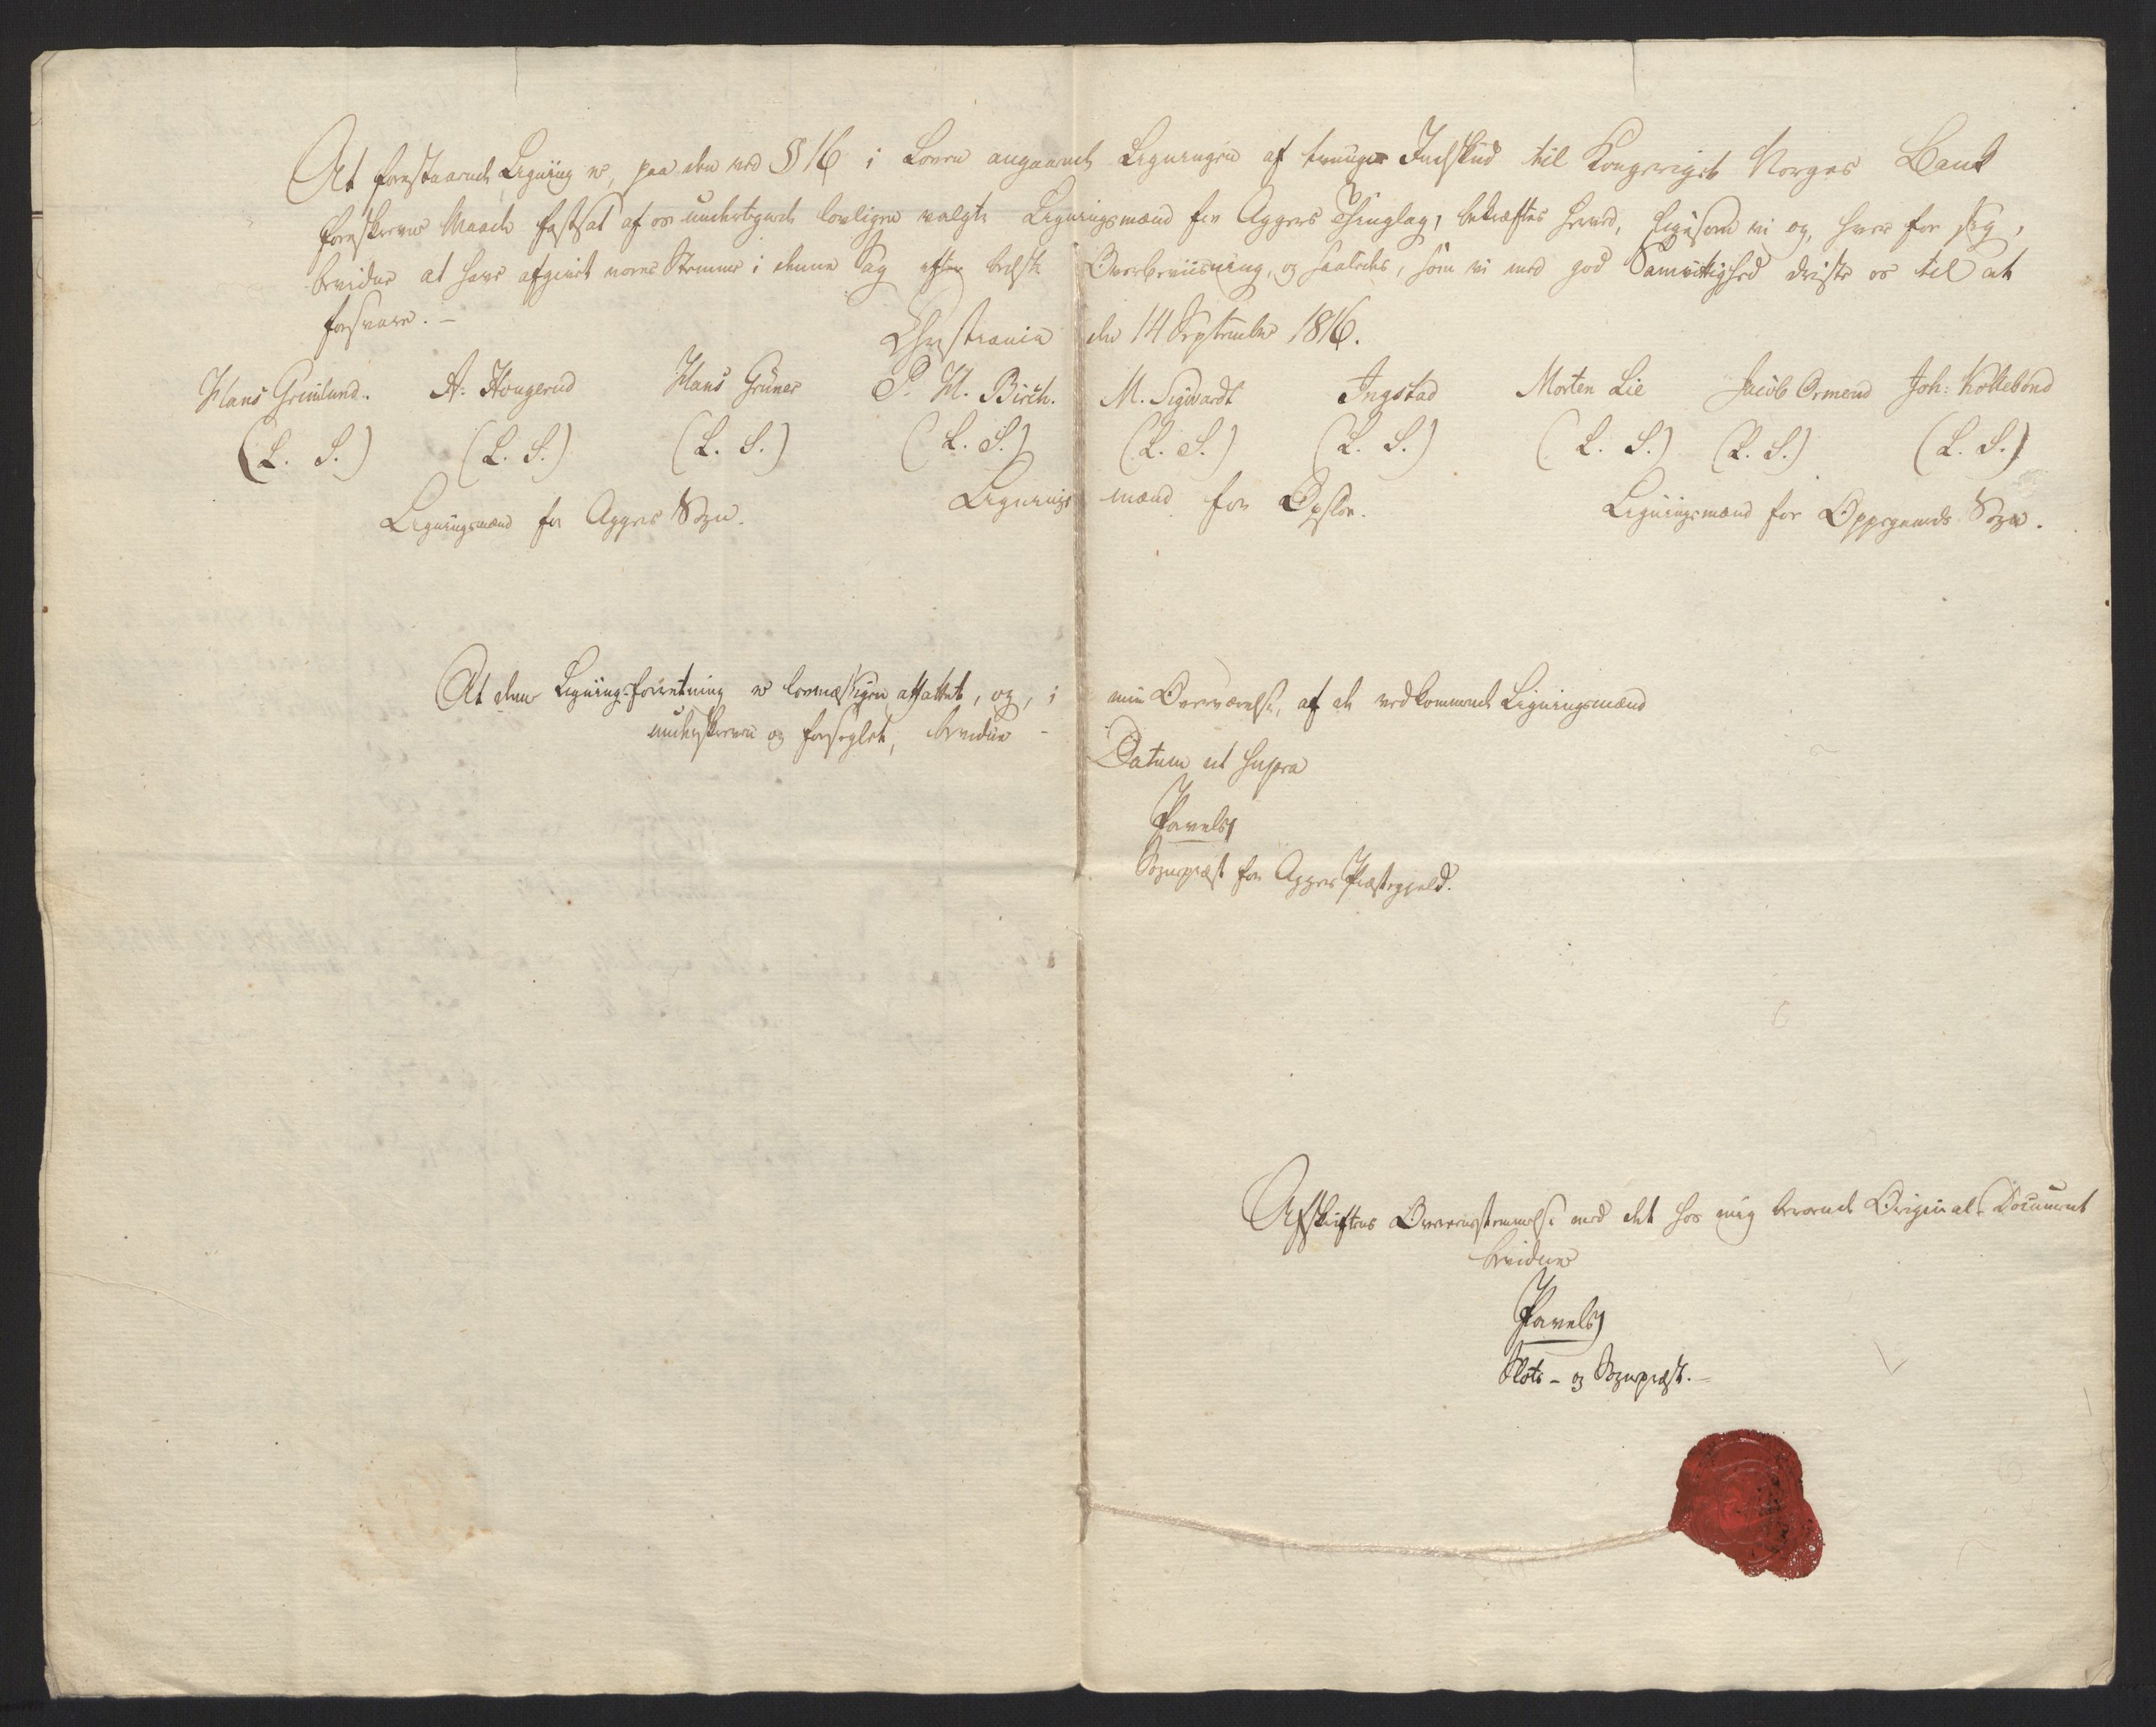 At foranstaaende Ligning er, paa den ved § 16 i Loven angaaende Ligningen af tvungne Indskud til Kongeriget Norges Bank
foreskrevne Maade fastsat af os undertegnede lovligen valgte Ligningsmænd for Aggers Thinglag, bekræftes herved, ligesom vi og, hver for sig,
bevidne at have afgivet vores Stemme i denne Sag efter bedste Overbeviisning, og saaledes, som vi med god Samvittighed driste os til at
forsvare. –
Christiania den 14 September 1816.
Hans Grimlund. A: Hougerud Hans Grüner P. H. Birch. M. Sigvardt Ingstad Morten Lie Jacob Ormerud Joh: Kollebond
(L. S.) (L. S.) (L. S.) (L. S.) (L. S.) (L. S.) (L. S.) (L. S.) (L. S.)
Ligningsmænd for Aggers Sogn. Ligningsmænd for Opsloe. Ligningsmænd for Oppegaards Sogn.
At denne Ligningsforretning er lovmæssigen affattet, og, i min Overværelse, af de vedkommende Ligningsmænd
underskreven og forseglet, bevidner –
Datum ut supra
Pavels
Sognepræst for Aggers Præstegjeld.
Afskriftens Overeensstemmelse med det hos mig beroende Original-Document
bevidner
Pavels
Slots- og Sognepræst. –